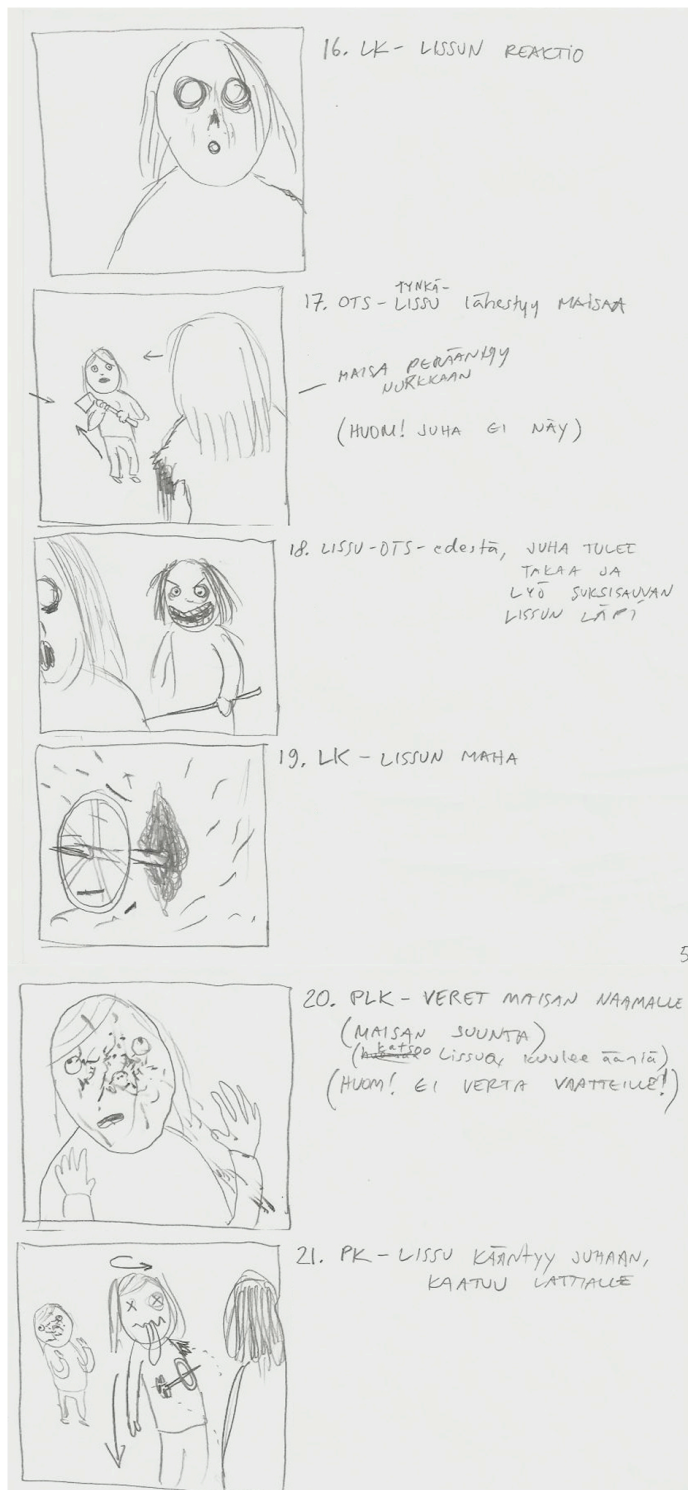 16. LK - LISSUN REAKTIO
TYNKÄ-
17. OTS - LISSU lähestyy MAISAA
MAISA PERÄÄNTYY
NURKKAAN
(HUOM! JUHA EI NÄY)
18. LISSU-OTS-edestä, JUHA TULEE
TAKAA JA
LYÖ SUKSISAUVAN
LISSUN LÄPI
19. LK - LISSUN MAHA
5
20. PLK - VERET MAISAN NAAMALLE
(MAISAN SUUNTA)
(katsoo Lissua, kuulee ääniä)
(HUOM! EI VERTA VAATTEILLE!)
21. PK - LISSU KÄÄNTYY JUHAAN,
KAATUU LATTIALLE